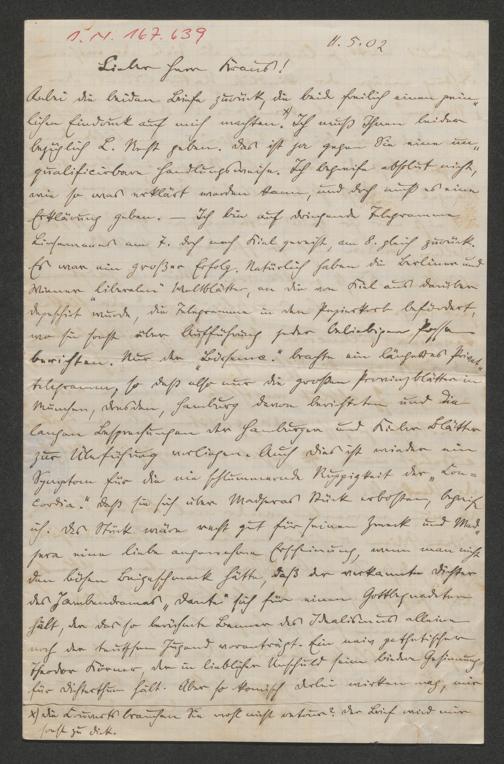 I. N. 167.639
11.5.02
Lieber Herr Kraus!
Anbei die beiden Briefe zurück, die beide freilich einen pein-
lichen Eindruck auf mich machten. x) Ich muß Ihnen leider
bezüglich L. Recht geben. Das ist ja gegen Sie eine un-
qualificirbare Handlungsweise. Ich begreife absolut nicht,
wie so was erklärt werden kann, und doch muß es eine
Erklärung geben. — Ich bin auf dringende Telegramme
am 7. doch nach Kiel gereist, am 8. gleich zurück.
Es war ein großer Erfolg. Natürlich haben die Berliner und
Wiener "liberalen" Weltblätter, an die von Kiel aus darüber
depeschirt wurde, die Telegramme in den Papierkorb befördert,
wo sie sonst über Aufführung jeder beliebigen Posse
berichten. Nur der "Börsenc." brachte ein längeres Privat-
telegramm, so daß also nur die großen Provinzblätter in
München, Dresden, Hamburg davon berichteten und die
langen Besprechungen der Hamburger und Kieler Blätter
zur Aufführung vorliegen. Auch dies ist wieder ein
Symptom für die nie schlummernde Ruppigkeit der "Con-
cordia". Daß sie sich über Maderas Stück erbosten, begreife
ich. Das Stück wäre recht gut für seinen Zweck und Mad-
jera eine liebe angenehme Erscheinung, wenn man nicht
den bösen Beigeschmack hätte, daß der verkannte Dichter
des Jambendramas "Dante" sich für einen Gottbegnadeten
hält, der das so berühmte Banner des Idealismus alleine
noch der teutschen Jugend voranträgt. Ein naiv pathetischer
Theodor Körner, der in lieblicher Unschuld seine biedre Gesinnung
für Dichterthum hält. Aber so komisch derlei wirken mag, mir
x) die Couverts brauchen Sie wohl nicht retour? Der Brief wird nur
sonst zu dick.